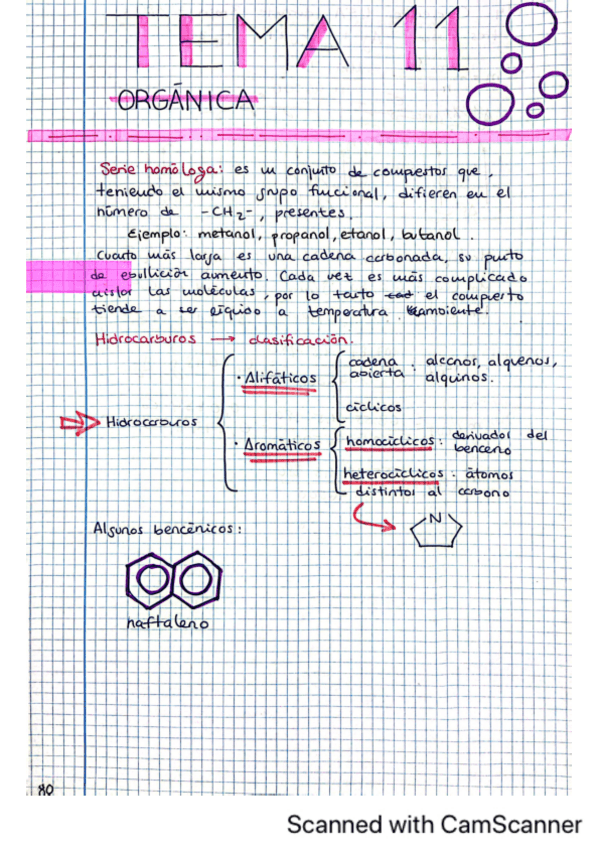 TEMA 11
ORGÁNICA
Serie homóloga: es un conjunto de compestos que,
teniendo el mismo grupo funcional, difieren en el
número de -CH2-, presentes.
Ejemplo: metanol, propanol, etanol, butanol.
Cuanto más larga es una cadena carbonada, su punto
de ebullición aumento. Cada vez es más complicado
aislar las moléculas, por lo tanto el compuerto
tiende a ser líquido a temperatura ambiente.
Hidrocarburos → clasificación.
Hidrocarburos
· Alifáticos
cadena abierta: alcanos, alquenos, alquinos.
cíclicos
· Aromáticos
homocíclicos: derivados del benceno
heterocíclicos: átomos distintos al carbono
N
Algunos bencénicos:
naftaleno
80
Scanned with CamScanner